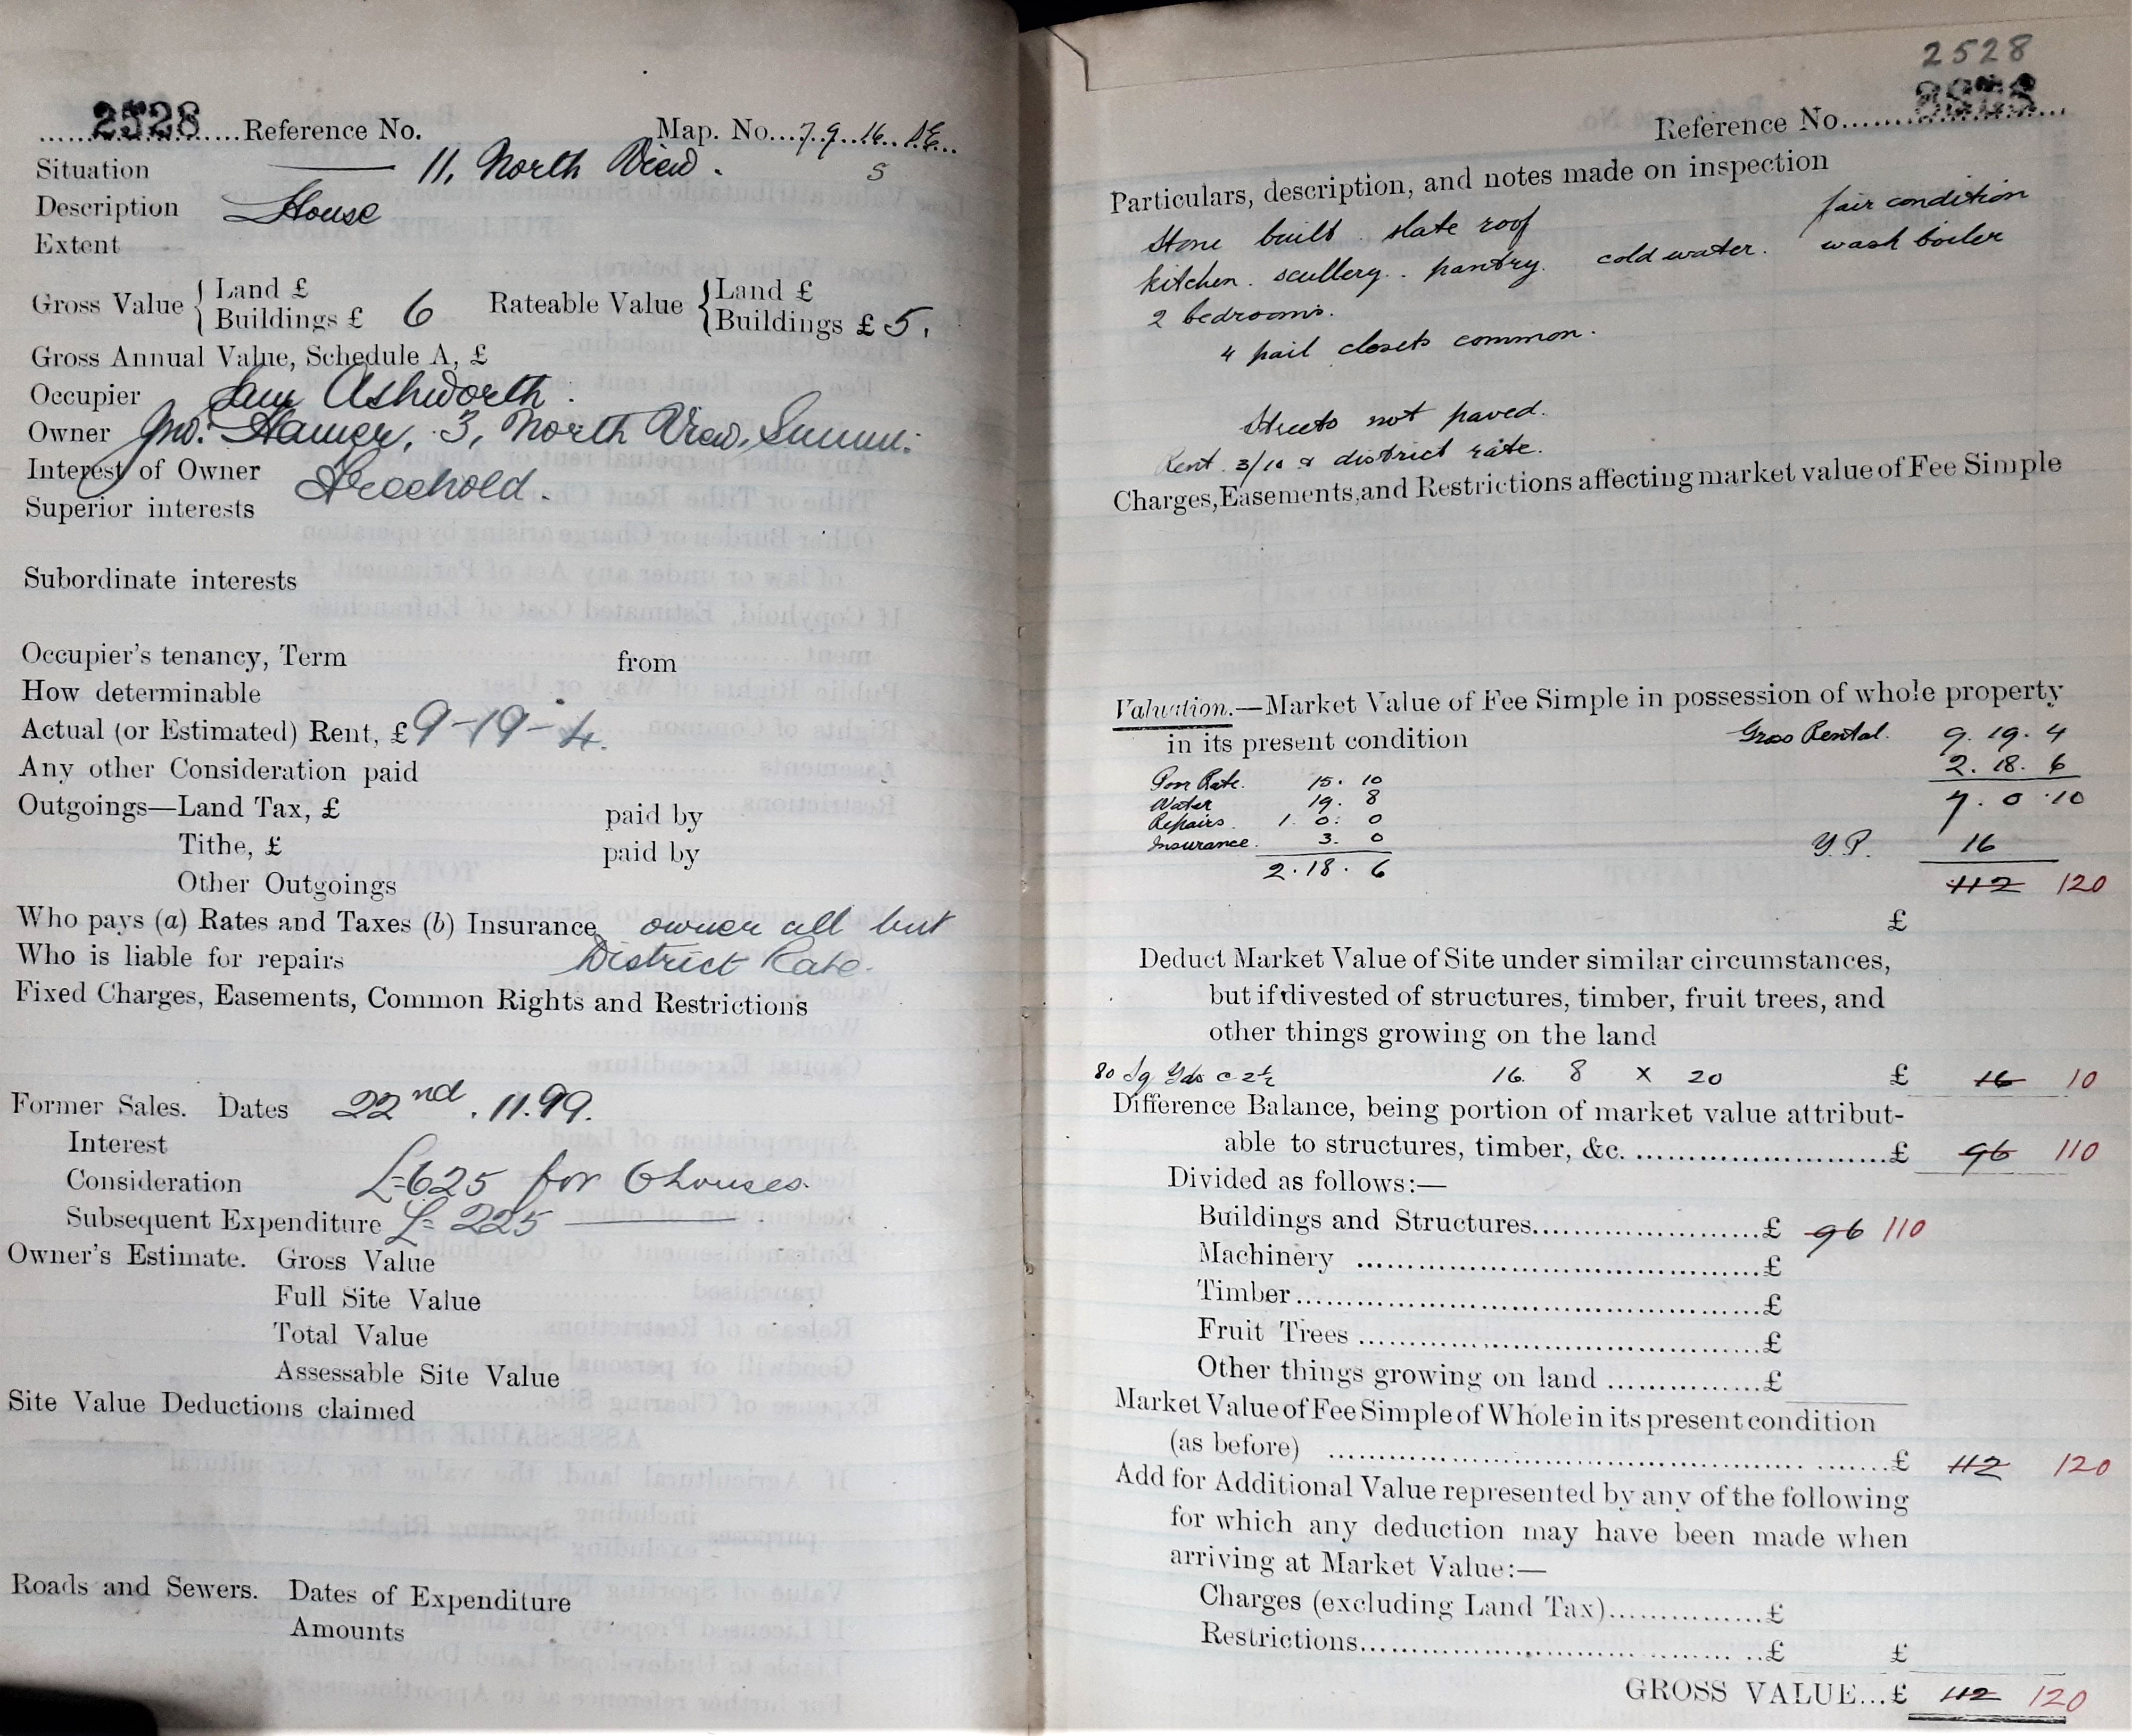 2528 Reference No. Map. No. 79.16. S.E.
S
Situation 11, North View.
Description House
Extent
Gross Value { Land £
Buildings £ 6
Rateable Value { Land £
Buildings £ 5.
Gross Annual Value, Schedule A, £
Occupier Sam Ashworth
Owner Jno. Hamer, 3, North View, Summ:
Interest of Owner Freehold.
Superior interests
Subordinate interests
Occupier's tenancy, Term from
How determinable
Actual (or Estimated) Rent, £ 9-19-4.
Any other Consideration paid
Outgoings—Land Tax, £ paid by
Tithe, £ paid by
Other Outgoings
Who pays (a) Rates and Taxes (b) Insurance owner all but
Who is liable for repairs District Rate.
Fixed Charges, Easements, Common Rights and Restrictions
Former Sales. Dates 22nd. 11.99.
Interest
Consideration £625 for 6 houses.
Subsequent Expenditure £225
Owner's Estimate. Gross Value
Full Site Value
Total Value
Assessable Site Value
Site Value Deductions claimed
Roads and Sewers. Dates of Expenditure
Amounts
2528
Reference No.
Particulars, description, and notes made on inspection
Stone built slate roof fair condition
kitchen. scullery. pantry. cold water. wash boiler
2 bedrooms.
4 pail closets common.
Streets not paved.
Rent 3/10 & district rate.
Charges, Easements, and Restrictions affecting market value of Fee Simple
Valuation.—Market Value of Fee Simple in possession of whole property
in its present condition Gross Rental. 9. 19. 4
Poor Rate. 15. 10 2. 18. 6
Water 19. 8 7. 0. 10
Repairs. 1. 0. 0
Insurance. 3. 0 Y.P. 16
2. 18. 6 112 120
£
Deduct Market Value of Site under similar circumstances,
but if divested of structures, timber, fruit trees, and
other things growing on the land
80 Sq Yds @ 2½ 16. 8 x 20 £ 16 10
Difference Balance, being portion of market value attribut-
able to structures, timber, &c. £ 96 110
Divided as follows:—
Buildings and Structures £ 96 110
Machinery £
Timber £
Fruit Trees £
Other things growing on land £
Market Value of Fee Simple of Whole in its present condition
(as before) £ 112 120
Add for Additional Value represented by any of the following
for which any deduction may have been made when
arriving at Market Value:—
Charges (excluding Land Tax) £
Restrictions £ £
GROSS VALUE...£ 112 120